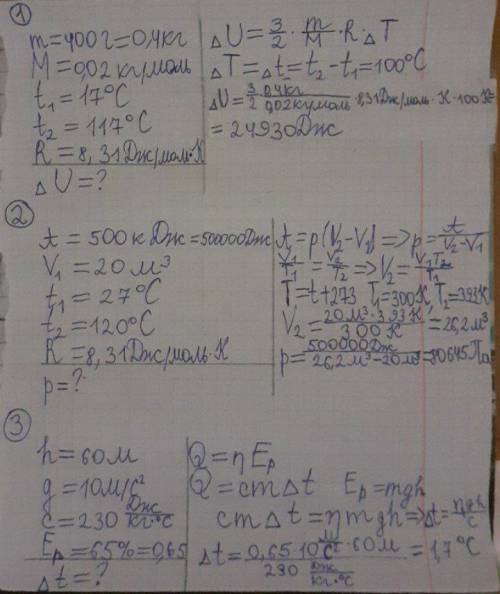 ①
m=400г=0,4кг
M=0,02 кг/моль
t₁=17°C
t₂=117°C
R=8,31Дж/моль·К
ΔU=?
ΔU=3/2·m/M·R·ΔT
ΔT=Δt=t₂-t₁=100°C
ΔU=3/2 0,4кг/0,02кг/моль·8,31Дж/моль·К·100К=
=24930Дж
②
A=500кДж=500000Дж
V₁=20м³
t₁=27°C
t₂=120°C
R=8,31Дж/моль·К
p=?
A=p(V₂-V₁)=>p=A/V₂-V₁
V₁/T₁=V₂/T₂=>V₂=V₁T₂/T₁
T=t+273 T₁=300К, T₂=393К
V₂=20м³·393К/300К=26,2м³
p=500000Дж/26,2м³-20м³=80645Па
③
h=60м
g=10м/с²
c=230 Дж/кг·°C
Eₚ=65%=0,65
Δt=?
Q=ηEₚ
Q=cmΔt Eₚ=mgh
cmΔt=ηmgh=>Δt=ηgh/c
Δt=0,65·10м/с²·60м/230 Дж/кг·°C=1,7°C